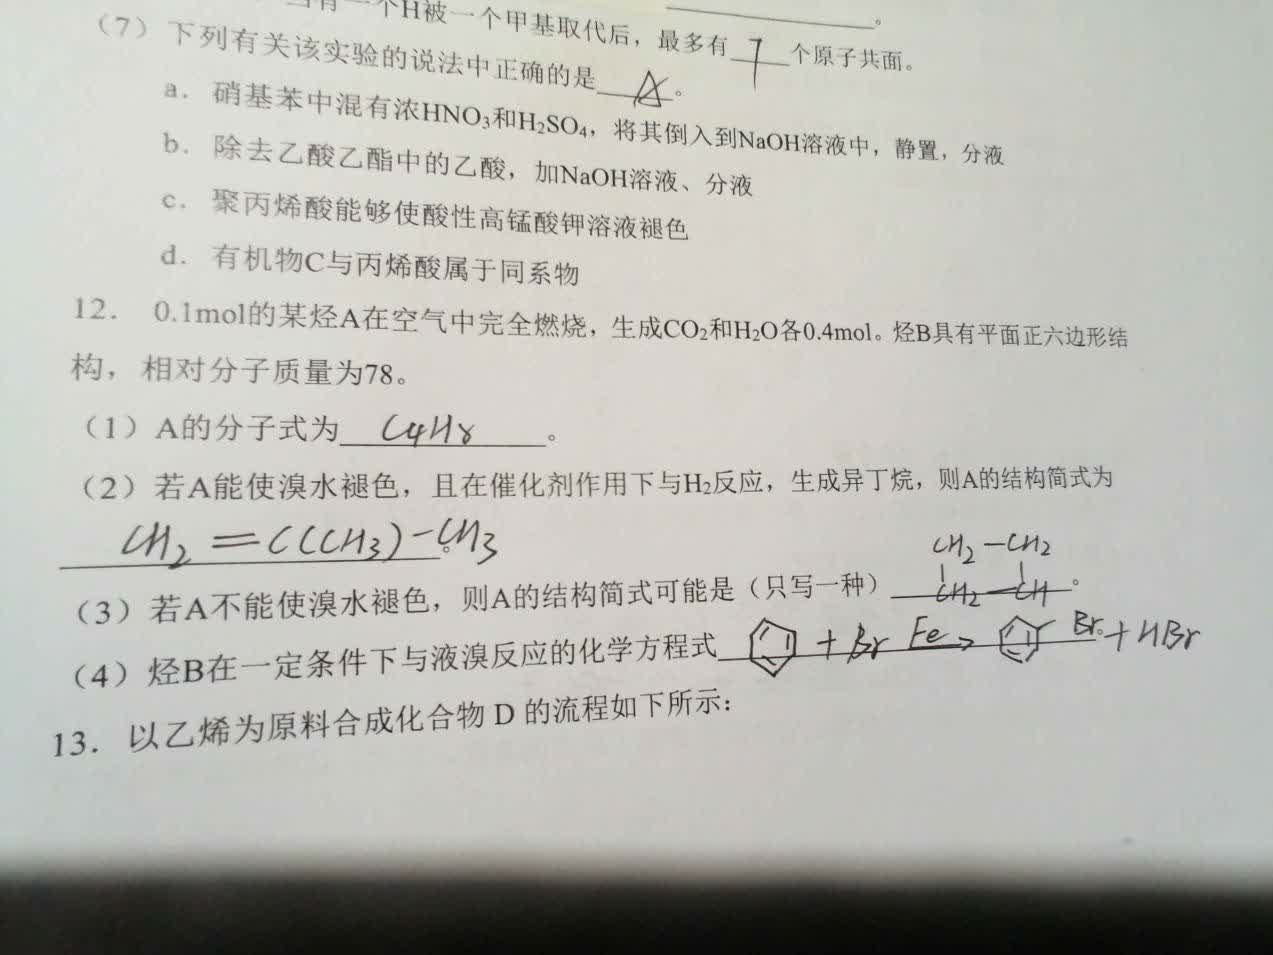 一个H被一个甲基取代后，最多有 7 个原子共面。
（7）下列有关该实验的说法中正确的是 A 。
a．硝基苯中混有浓HNO₃和H₂SO₄，将其倒入到NaOH溶液中，静置，分液
b．除去乙酸乙酯中的乙酸，加NaOH溶液、分液
c．聚丙烯酸能够使酸性高锰酸钾溶液褪色
d．有机物C与丙烯酸属于同系物
12． 0.1mol的某烃A在空气中完全燃烧，生成CO₂和H₂O各0.4mol。烃B具有平面正六边形结
构，相对分子质量为78。
（1）A的分子式为 C4H8 。
（2）若A能使溴水褪色，且在催化剂作用下与H₂反应，生成异丁烷，则A的结构简式为
CH₂=C(CH3)-CH3 。
CH₂-CH₂
（3）若A不能使溴水褪色，则A的结构简式可能是（只写一种） CH₂-CH 。
（4）烃B在一定条件下与液溴反应的化学方程式 + Br Fe→ Br + HBr 。
13．以乙烯为原料合成化合物 D 的流程如下所示：